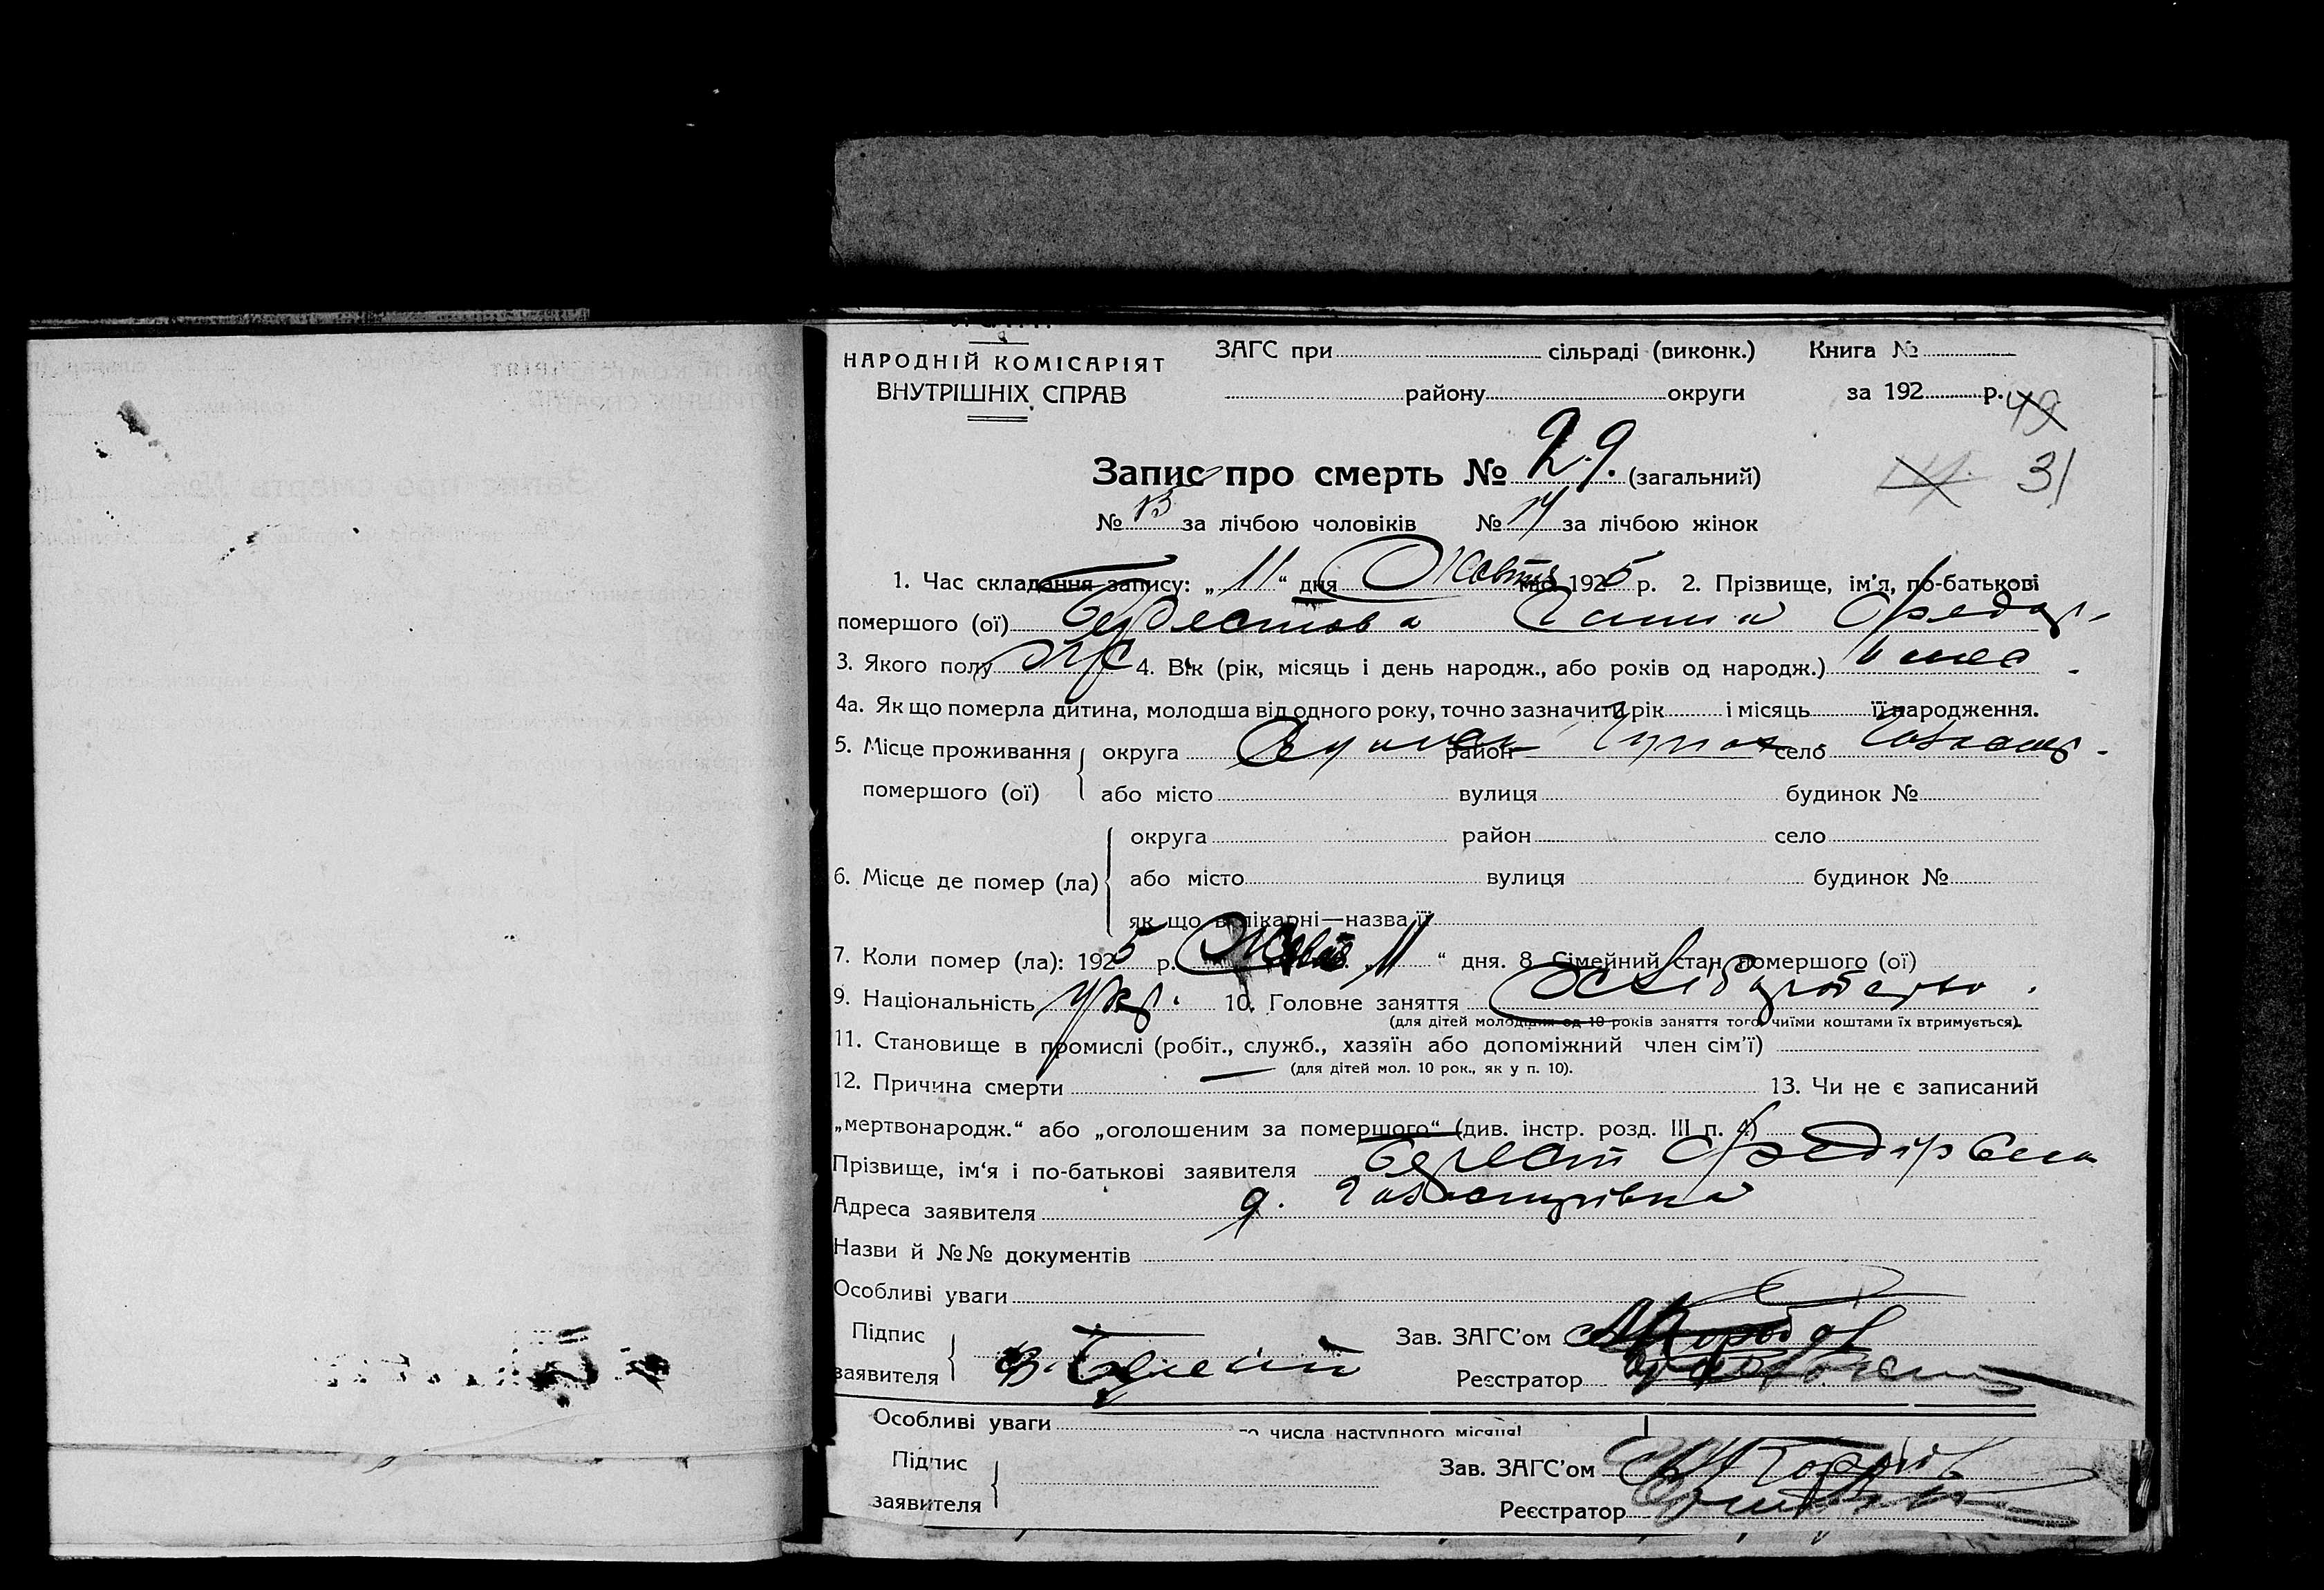 НАРОДНІЙ КОМІСАРІЯТ
ВНУТРІШНІХ СПРАВ
ЗАГС при сільраді (виконк.) Книга №
району округи за 192 р.
49
Запис про смерть № 29. (загальний)
31
№ 13 за лічбою чоловіків № 14 за лічбою жінок
1. Час складання запису: „ 11 “ дня Жовтня 1925 р. 2. Прізвище, ім'я, по-батькові
помершого (ої) Ганна Федор.
3. Якого полу ж 4. Вік (рік, місяць і день народж., або років од народж.)
4а. Як що померла дитина, молодша від одного року, точно зазначити рік і місяць її народження.
5. Місце проживання округа район село
помершого (ої) або місто вулиця будинок №
округа район село
6. Місце де помер (ла) або місто вулиця будинок №
як що в лікарні—назва її
7. Коли помер (ла): 1925 р. Жовт 11 “ дня. 8. Сімейний стан помершого (ої)
9. Національність Укр. 10. Головне заняття Хліборобство.
(для дітей молодших од 10 років заняття того, чиїми коштами їх втримується).
11. Становище в промислі (робіт., служб., хазяїн або допоміжний член сім'ї)
(для дітей мол. 10 рок., як у п. 10).
12. Причина смерти — 13. Чи не є записаний
„мертвонародж.“ або „оголошеним за помершого“ (див. інстр. розд. III п. 4)
Прізвище, ім'я і по-батькові заявителя Берест Федір
Адреса заявителя
Назви й №№ документів
Особливі уваги
Підпис
заявителя Берест
Зав. ЗАГС'ом
Реєстратор
Особливі уваги
числа наступного місяця!
Підпис
заявителя
Зав. ЗАГС'ом
Реєстратор